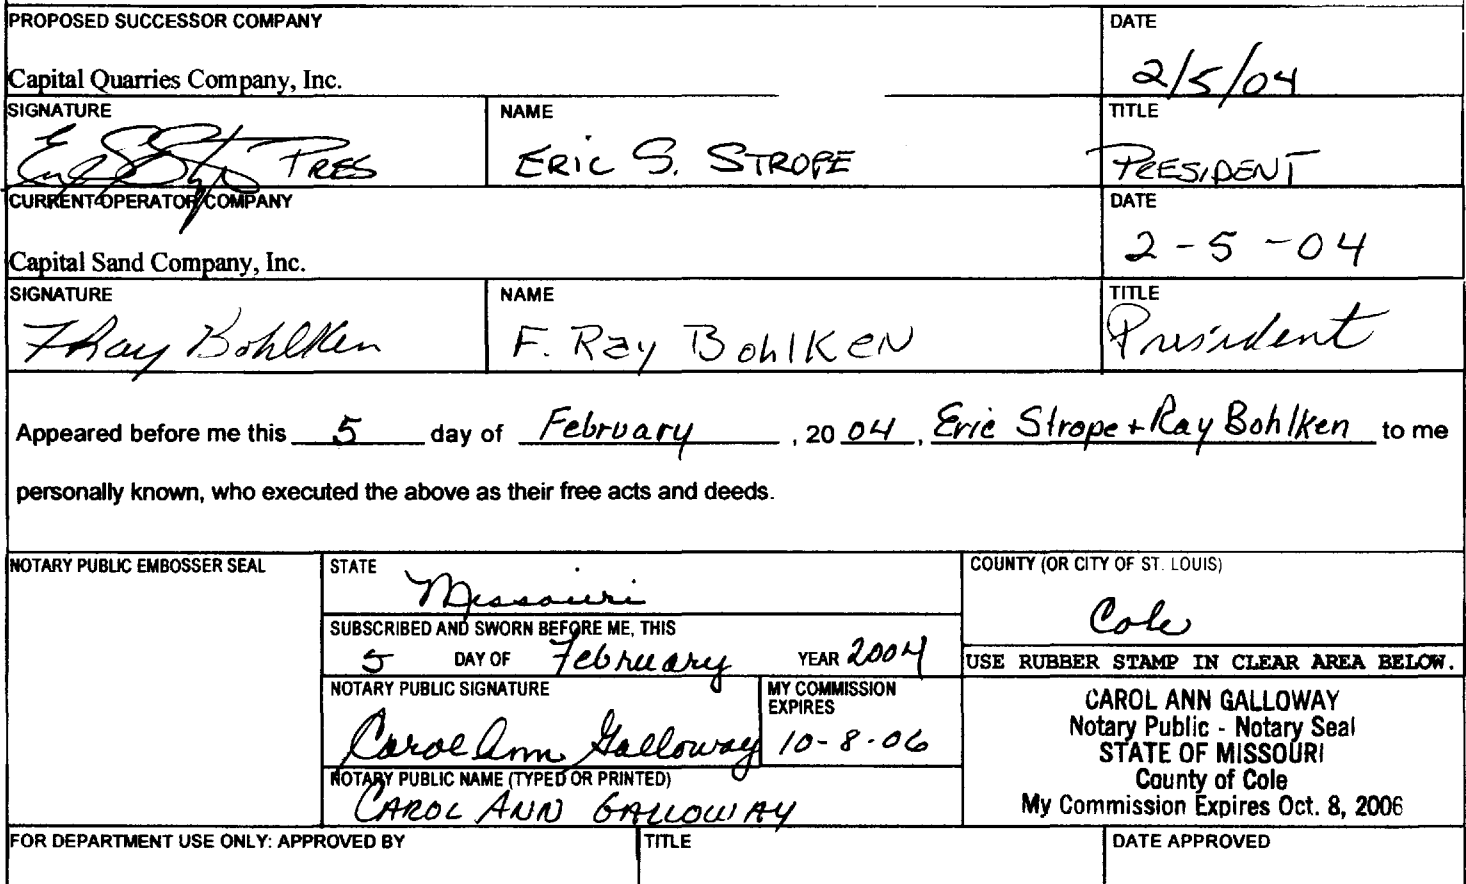 PROPOSED SUCCESSOR COMPANY
DATE
Capital Quarries Company, Inc.
2/5/04
SIGNATURE
NAME
TITLE
PRES
ERIC S. STROPE
PRESIDENT
CURRENT OPERATOR COMPANY
DATE
Capital Sand Company, Inc.
2-5-04
SIGNATURE
NAME
TITLE
F Ray Bohlken
F. Ray Bohlken
President
Appeared before me this 5 day of February, 20 04, Eric Strope + Ray Bohlken to me
personally known, who executed the above as their free acts and deeds.
NOTARY PUBLIC EMBOSSER SEAL
STATE
Missouri
COUNTY (OR CITY OF ST. LOUIS)
Cole
SUBSCRIBED AND SWORN BEFORE ME, THIS
5 DAY OF February YEAR 2004
USE RUBBER STAMP IN CLEAR AREA BELOW.
NOTARY PUBLIC SIGNATURE
Carol Ann Galloway
MY COMMISSION
EXPIRES
10-8-06
NOTARY PUBLIC NAME (TYPED OR PRINTED)
CAROL ANN GALLOWAY
CAROL ANN GALLOWAY
Notary Public - Notary Seal
STATE OF MISSOURI
County of Cole
My Commission Expires Oct. 8, 2006
FOR DEPARTMENT USE ONLY: APPROVED BY
TITLE
DATE APPROVED